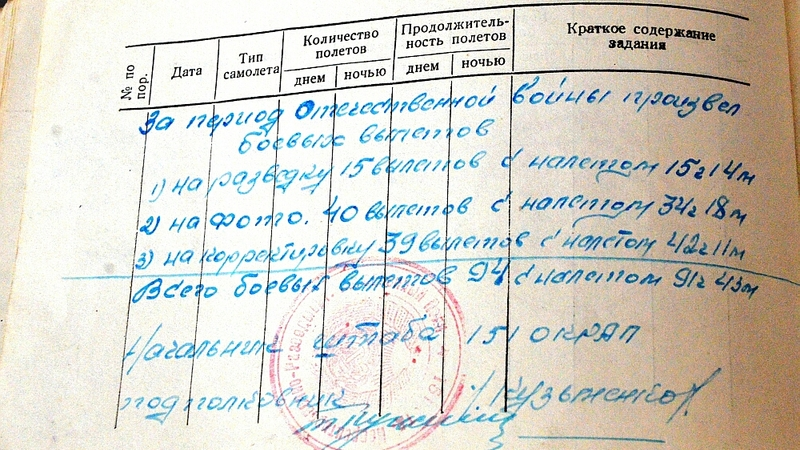 № по пор.
Дата
Тип самолета
Количество полетов
днем
ночью
Продолжитель-
ность полетов
днем
ночью
Краткое содержание
задания
За период Отечественной войны произвел
боевых вылетов
1) на разведку 15 вылетов с налетом 15ч 14м
2) на фото. 40 вылетов с налетом 34ч 18м
3) на корректировку 39 вылетов с налетом 42ч 11м
Всего боевых вылетов 94 с налетом 91ч 43м
Начальник штаба 151 ОКРАП
подполковник /Кузьменко/